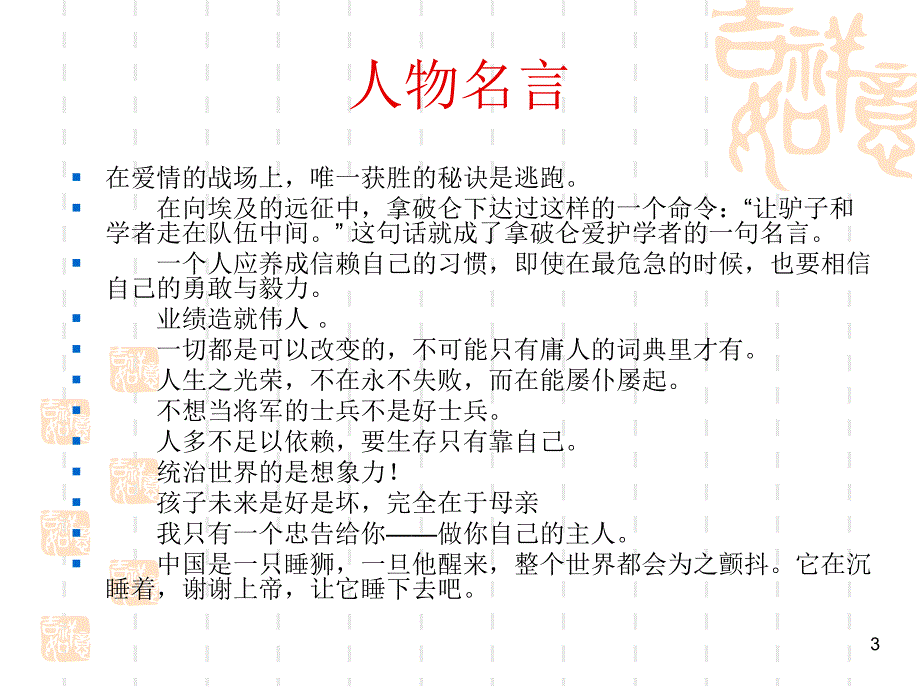 吉祥如意
人物名言
在爱情的战场上，唯一获胜的秘诀是逃跑。
在向埃及的远征中，拿破仑下达过这样的一个命令：“让驴子和
学者走在队伍中间。” 这句话就成了拿破仑爱护学者的一句名言。
一个人应养成信赖自己的习惯，即使在最危急的时候，也要相信
自己的勇敢与毅力。
业绩造就伟人 。
一切都是可以改变的，不可能只有庸人的词典里才有。
人生之光荣，不在永不失败，而在能屡仆屡起。
不想当将军的士兵不是好士兵。
人多不足以依赖，要生存只有靠自己。
统治世界的是想象力！
孩子未来是好是坏，完全在于母亲
我只有一个忠告给你——做你自己的主人。
中国是一只睡狮，一旦他醒来，整个世界都会为之颤抖。它在沉
睡着，谢谢上帝，让它睡下去吧。
吉祥如意
吉祥如意
吉祥如意
吉祥如意
吉祥如意
吉祥如意
3